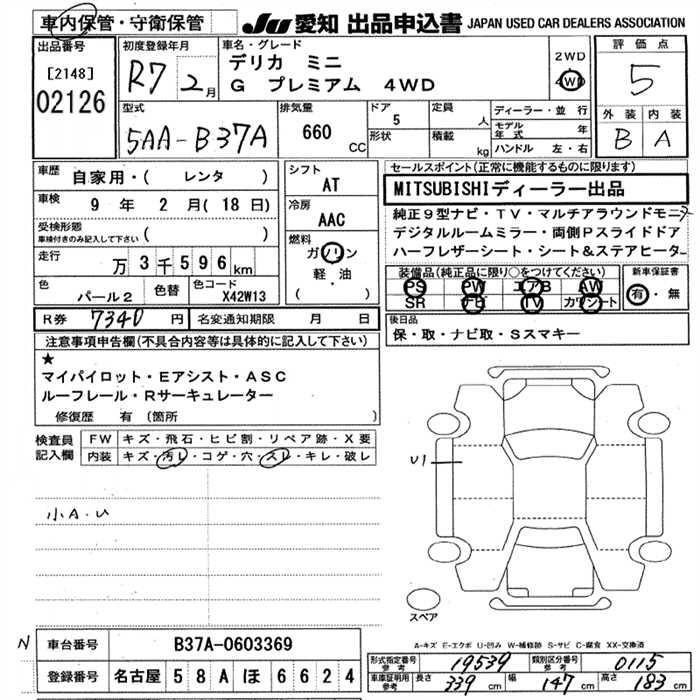 車内保管・守衛保管
JU 愛知 出品申込書 JAPAN USED CAR DEALERS ASSOCIATION
出品番号
[2148]
02126
初度登録年月
R7 2月
車名・グレード
デリカ ミニ
G プレミアム 4WD
2WD
4WD
評価点
5
外装 内装
B A
型式
5AA-B37A
排気量
660 CC
ドア 5
形状
定員 人
積載 kg
ディーラー・並行
モデル年式 年
ハンドル 左・右
車歴 自家用・( レンタ )
車検 9 年 2 月(18日)
受検形態
車検付きのみ記入して下さい ( )
走行 万3千596km
色 パール2 色替 色コード X42W13
シフト AT
冷房 AAC
燃料
ガソリン
軽・油
( )
セールスポイント(正常に機能するものに限ります)
MITSUBISHIディーラー出品
純正9型ナビ・TV・マルチアラウンドモニター
デジタルルームミラー・両側Pスライドドア
ハーフレザーシート・シート&ステアヒーター
装備品(純正品に限り○をつけてください)
PS PW エアB AW
SR ナビ TV カワシート
新車保証書
有・無
R券 7340 円 名変通知期限 月 日
後日品
保・取・ナビ取・Sスマキー
注意事項申告欄(不具合内容等は具体的に記入して下さい)
★
マイパイロット・Eアシスト・ASC
ルーフレール・Rサーキュレーター
修復歴 有 (箇所 )
検査員記入欄
FW キズ・飛石・ヒビ割・リペア跡・X要
内装 キズ・汚レ・コゲ・穴・スレ・キレ・破レ
小A・U
U1
スペア
A-キズ E-エクボ U-凹み W-補修跡 S-サビ C-腐食 XX-交換済
N
車台番号 B37A-0603369
登録番号 名古屋 58A ほ 6624
形式指定番号 参考 19539 類別区分番号 参考 0115
車庫証明用 参考 長さ 339 cm 幅 147 cm 高さ 183 cm